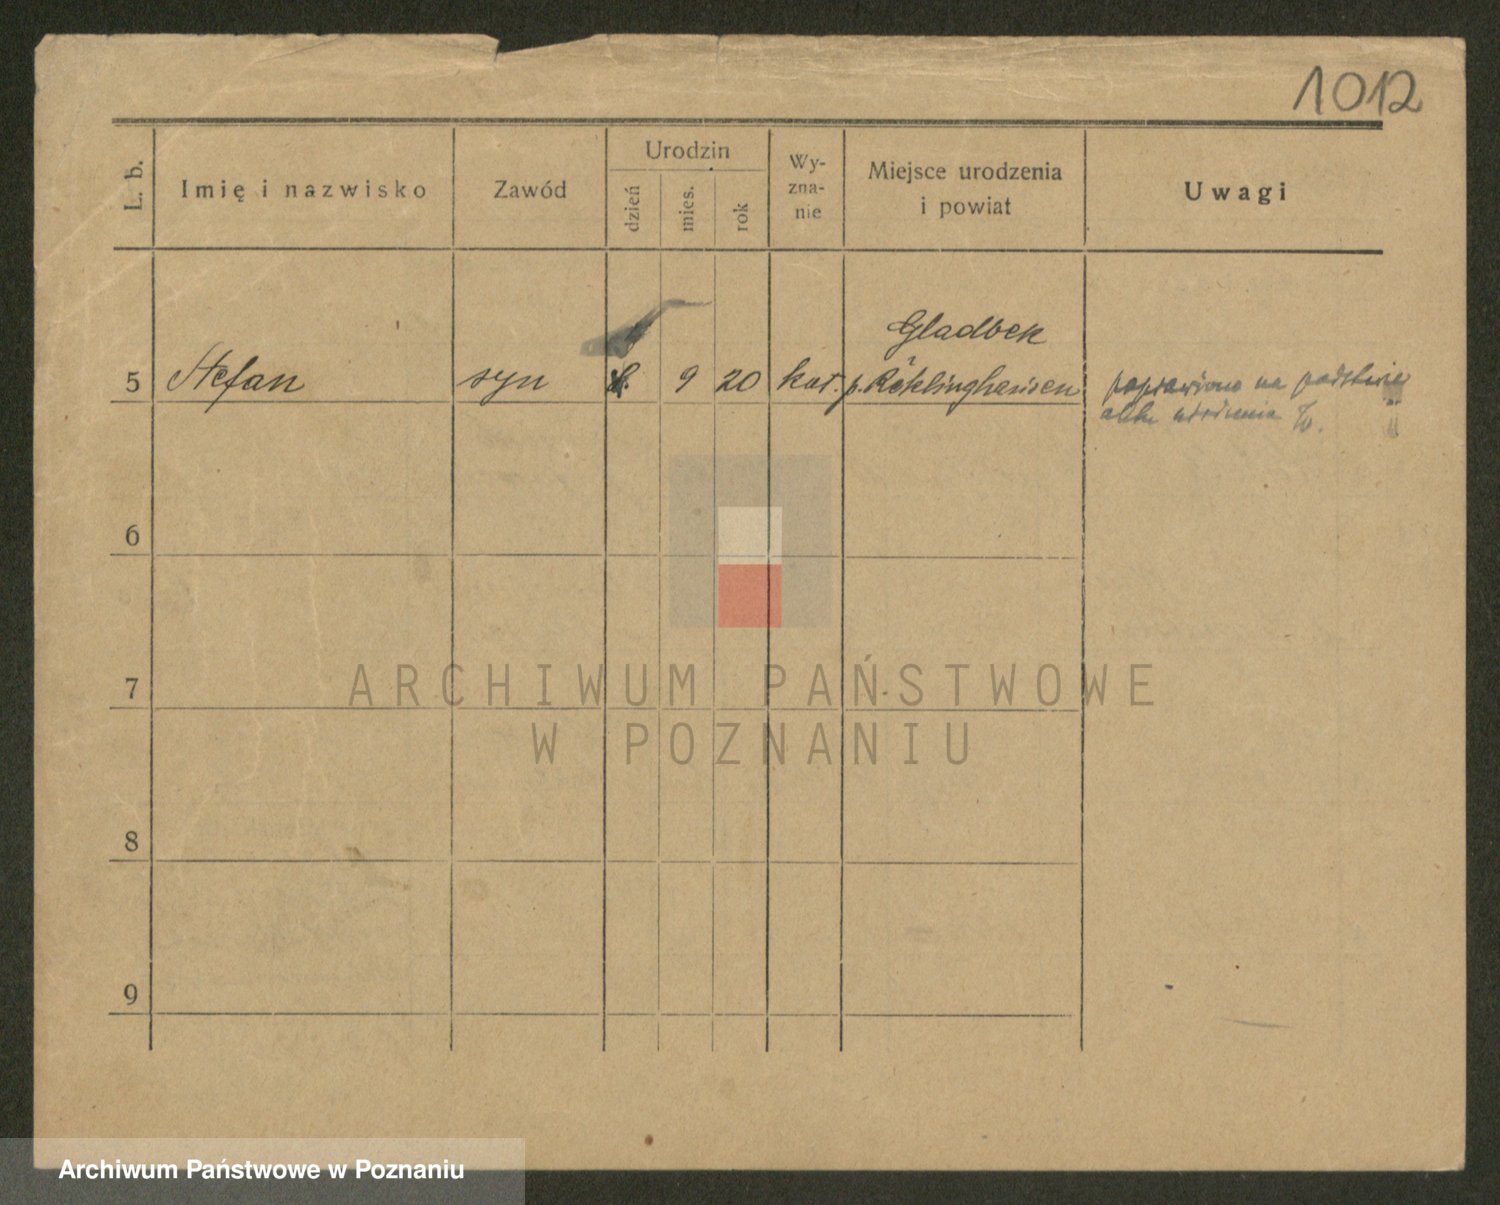 1012
L. b.
Imię i nazwisko
Zawód
Urodzin
dzień
mies.
rok
Wy-
zna-
nie
Miejsce urodzenia
i powiat
Uwagi
Gladbek
5 Stefan syn 9 20 kat. p. Röklinghausen poprawiono na podstawie
aktu urodzenia
6
7
8
9
ARCHIWUM PAŃSTWOWE
W POZNANIU
Archiwum Państwowe w Poznaniu